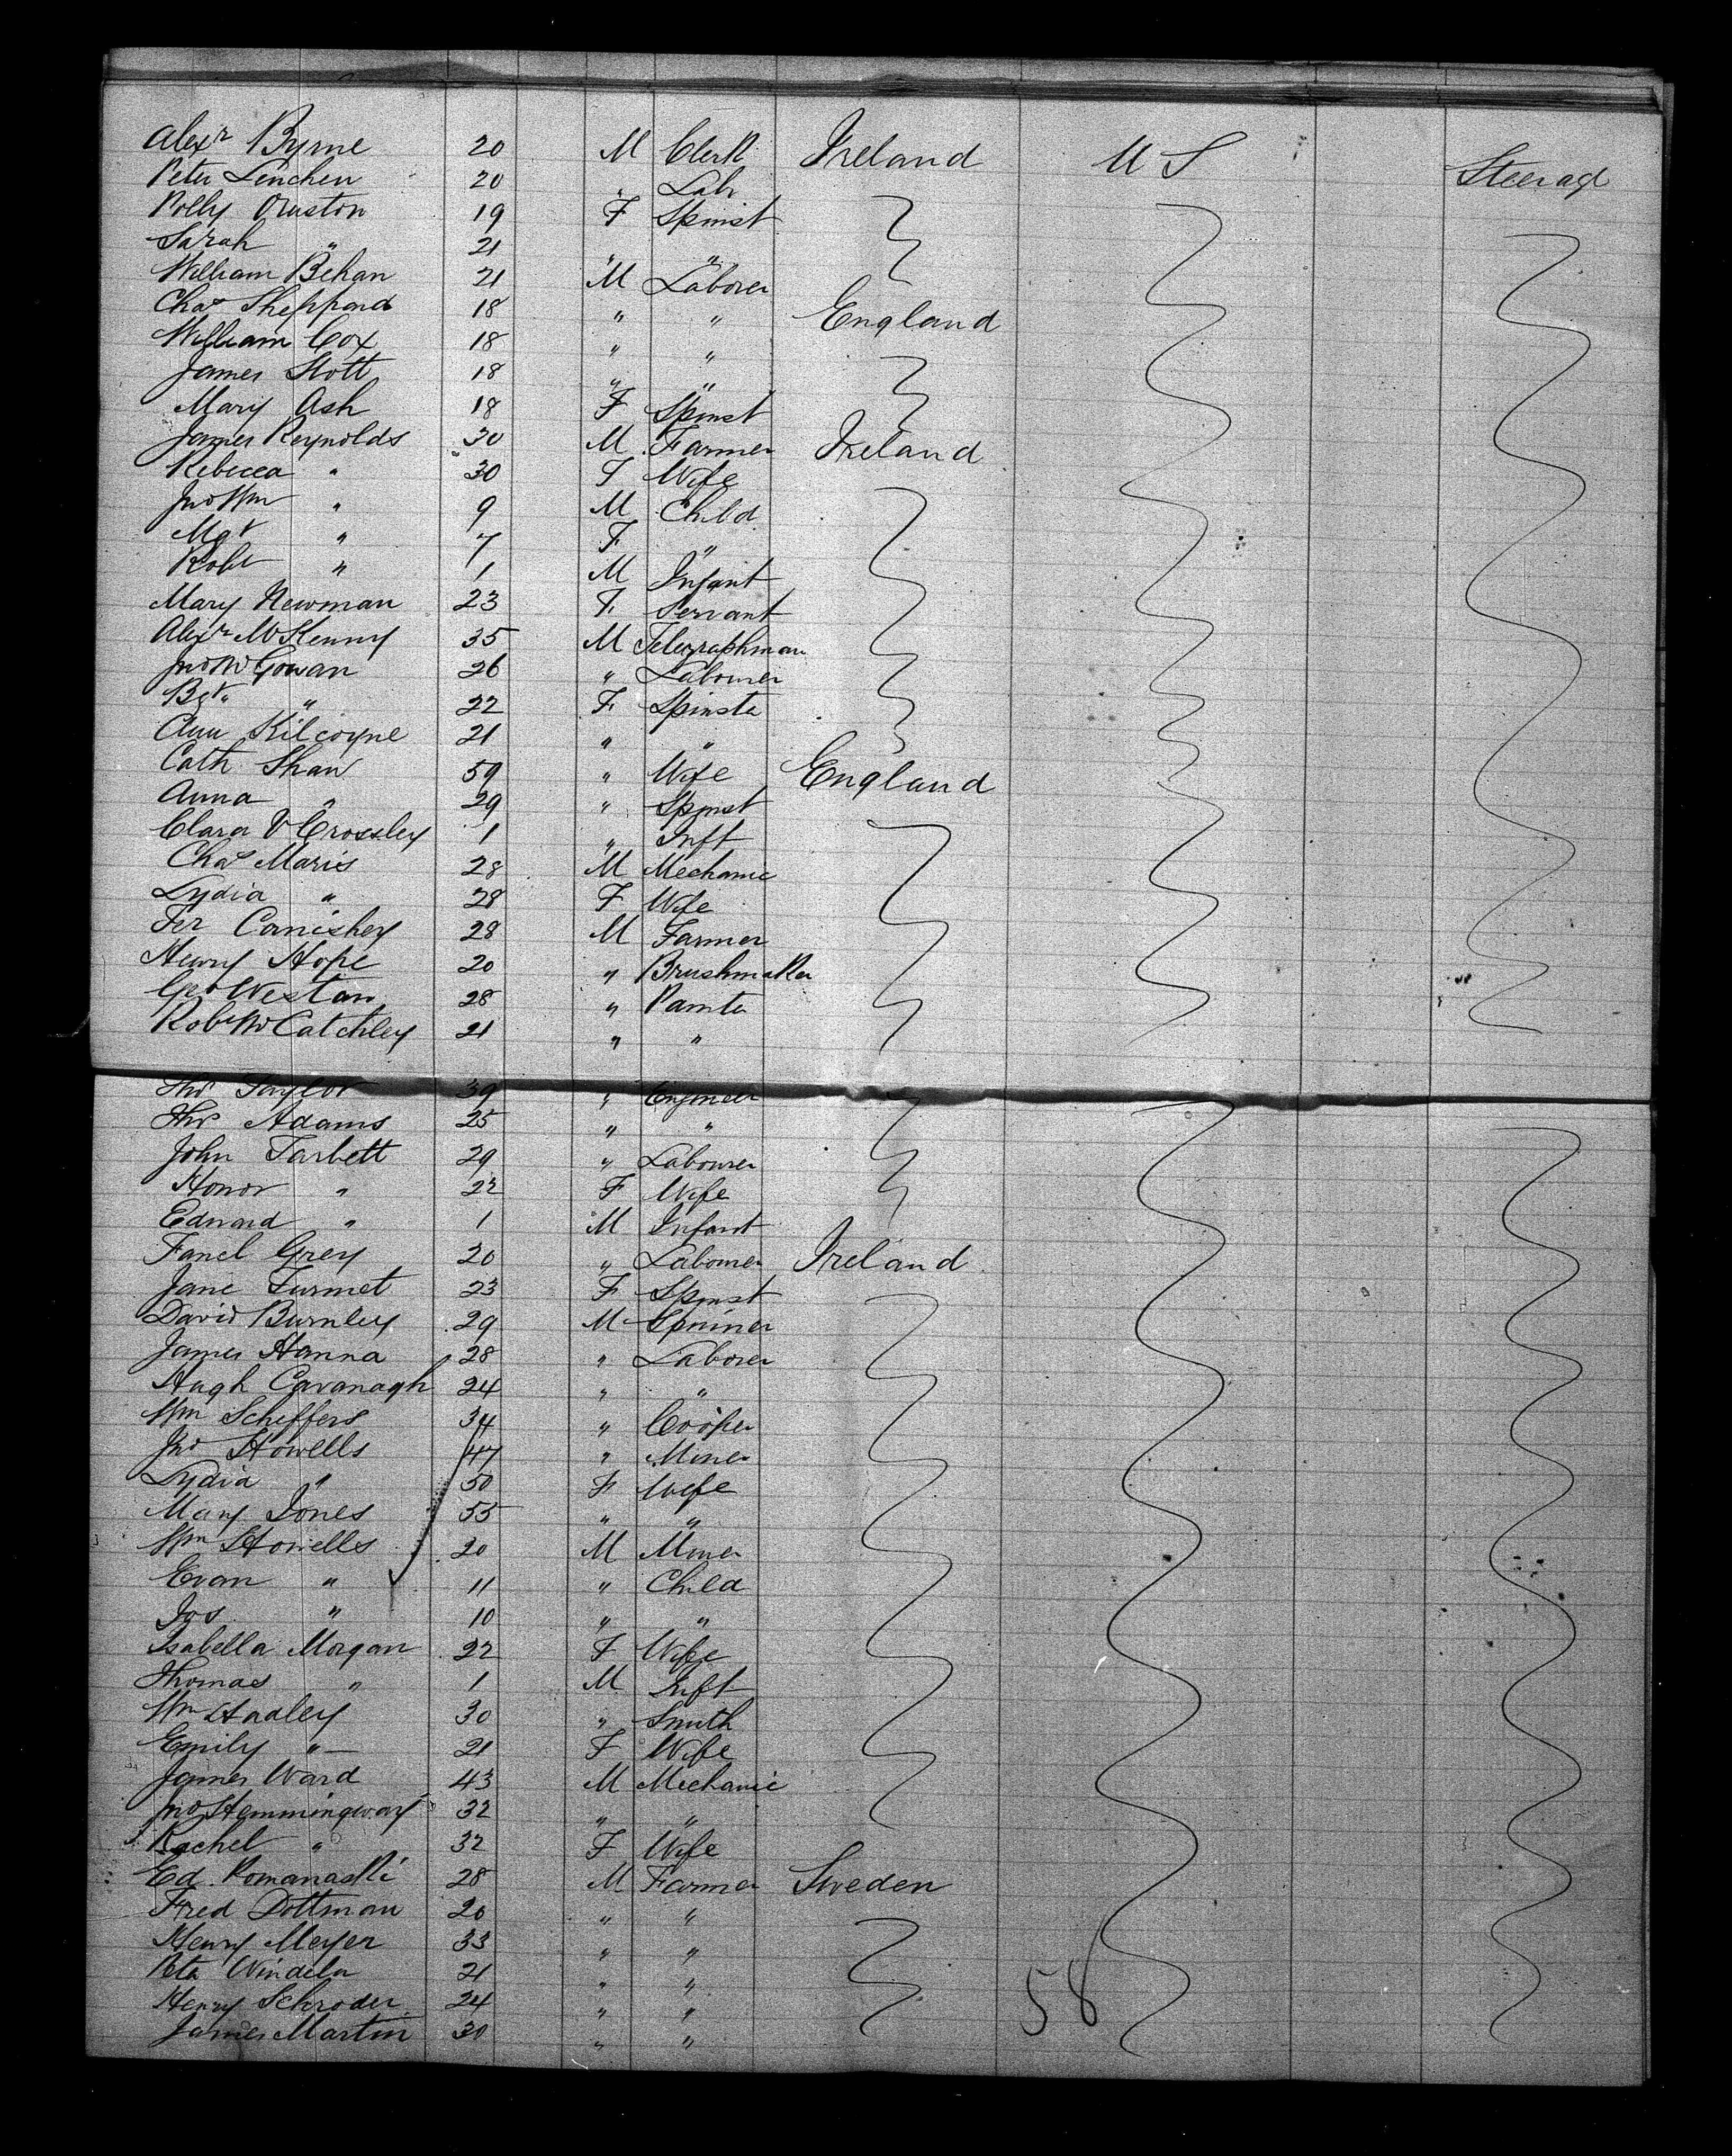 Alexr Byrne 20 M Clerk Ireland U S Steerage
Peter Linchen 20 " Lab
Polly Oruston 19 F Spinst
Sarah " 21 " "
William Behan 21 M Laborer
Chas Sheppard 18 " " England
William Cox 18 " "
James Stott 18 " "
Mary Ash 18 F Spinst
James Reynolds 30 M Farmer Ireland
Rebecca " 30 F Wife
Jno Wm " 9 M Child
Mgt " 7 F "
Robt " 1 M Infant
Mary Newman 23 F Servant
Alexr McKenny 35 M Telegraphman
Jno McGowan 26 " Labourer
Bgt " 22 F Spinster
Ann Kilcoyne 21 " "
Cath Shaw 59 " Wife England
Anna " 29 " Spinst
Clara V Crossley 1 " Inft
Chas Maris 28 M Mechanic
Lydia " 28 F Wife
Fer Carnishey 28 M Farmer
Henry Hope 20 " Brushmaker
Geo Westan 28 " Painter
Robt McCatchley 21 " "
Thos Taylor 39 " Engineer
Thos Adams 25 " "
John Tarbett 29 " Labourer
Honor " 22 F Wife
Edward " 1 M Infant
Grey 20 " Labourer Ireland
Jane Turmet 23 F Spinst
David Burnley 29 M Spinner
James Hanna 28 " Laborer
Hugh Cavanagh 24 " "
Wm Scheffers 34 " Cooper
Jno Howells 47 " Miner
Lydia " 50 F Wife
Mary Jones 55 " "
Wm Howells 20 M Miner
Evan " 11 " Child
Jos " 10 " "
Isabella Morgan 22 F Wife
Thomas " 1 M Inft
Wm Hadley 30 " Smith
Emily " 21 F Wife
James Ward 43 M Mechanic
Jno Hemmingway 32 " "
Rachel " 32 F Wife
Ed Romanaski 28 M Farmer Sweden
Fred Dottman 20 " "
Henry Meyer 33 " "
Peter Windeler 21 " "
Henry Schroder 24 " " 58
James Martin 30 " "